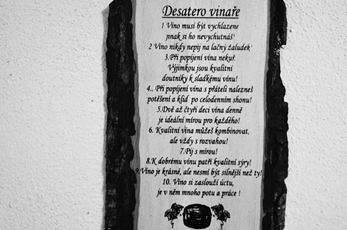 Desatero vinaře
1 Víno musí být vychlazené
jinak si ho nevychutnáš!
2 Víno nikdy nepij na lačný žaludek!
3.Při popíjení vína nekuř.
Výjimkou jsou kvalitní
doutníky k sladkému vínu!
4.. Při popíjení vína s přáteli nalezneš
potěšení a klid po celodenním shonu!
5.Dvě až čtyři deci vína denně
je ideální mírou pro každého!
6. Kvalitní vína můžeš kombinovat,
ale vždy s rozvahou!
7.Pij s mírou!
8.K dobrému vínu patří kvalitní sýry!
9.Víno je krásné, ale nesmí být silnější než ty!
10. Víno si zaslouží úctu,
je v něm mnoho potu a práce !